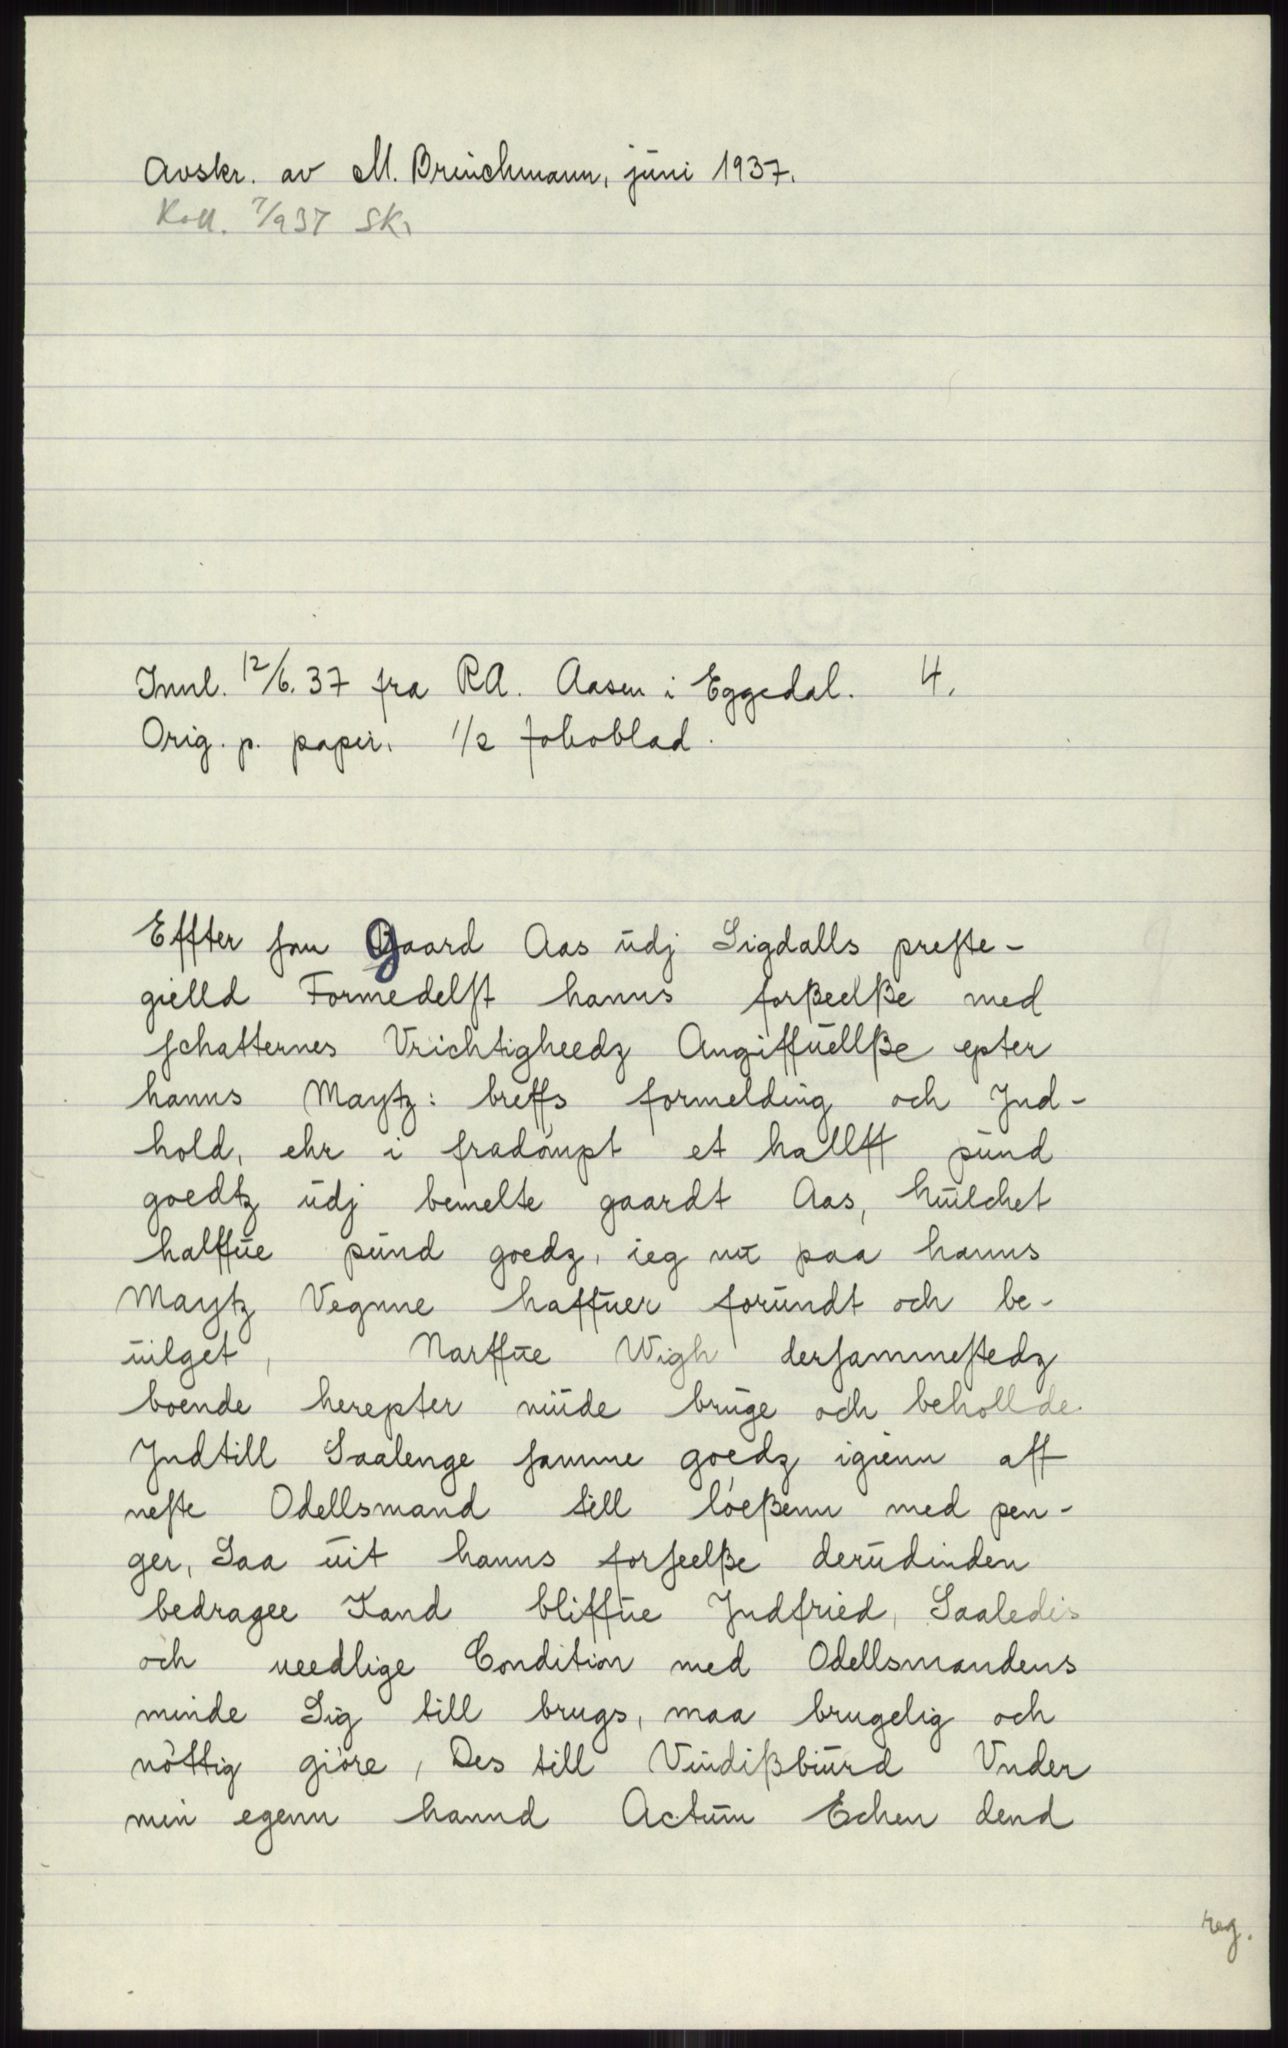 Avskr. av M. Brinchmann, juni 1937.
Koll. 7/9 37 SK.
Innl. 12/6. 37 fra RA. Aasen i Eggedal. 4.
Orig. p. papir. 1/2 folioblad.
Effter som Gaard Aas udj Sigdalls preste-
gielld Formedelst hanns forßeelße med
schatternes Vrichtigheedz Angiffuellße epter
hanns Maytz: breffs formelding och Jnd-
hold, ehr i fradömpt et hallff pund
goedtz udj bemelte gaardt Aas, huilchet
halffue pund goedz, ieg nu paa hanns
Maytz Vegnne haffuer forundt och be-
uilget, Narffue Wigh dersammestedz
boende herepter niude bruge och behollde
Jndtill Saalenge samme goedz igienn aff
neste Odellsmand till löeßenn med pen-
ger, Saa uit hanns forseelße derudinden
bedragee Kand bliffue Jndfried, Saaledis
och ueedlige Condition med Odellsmandens
minde Sig till brugs, maa brugelig och
nöttig giöre, Des till Vindißbiurd Vnder
min egenn hannd Actum Echen dend
reg.